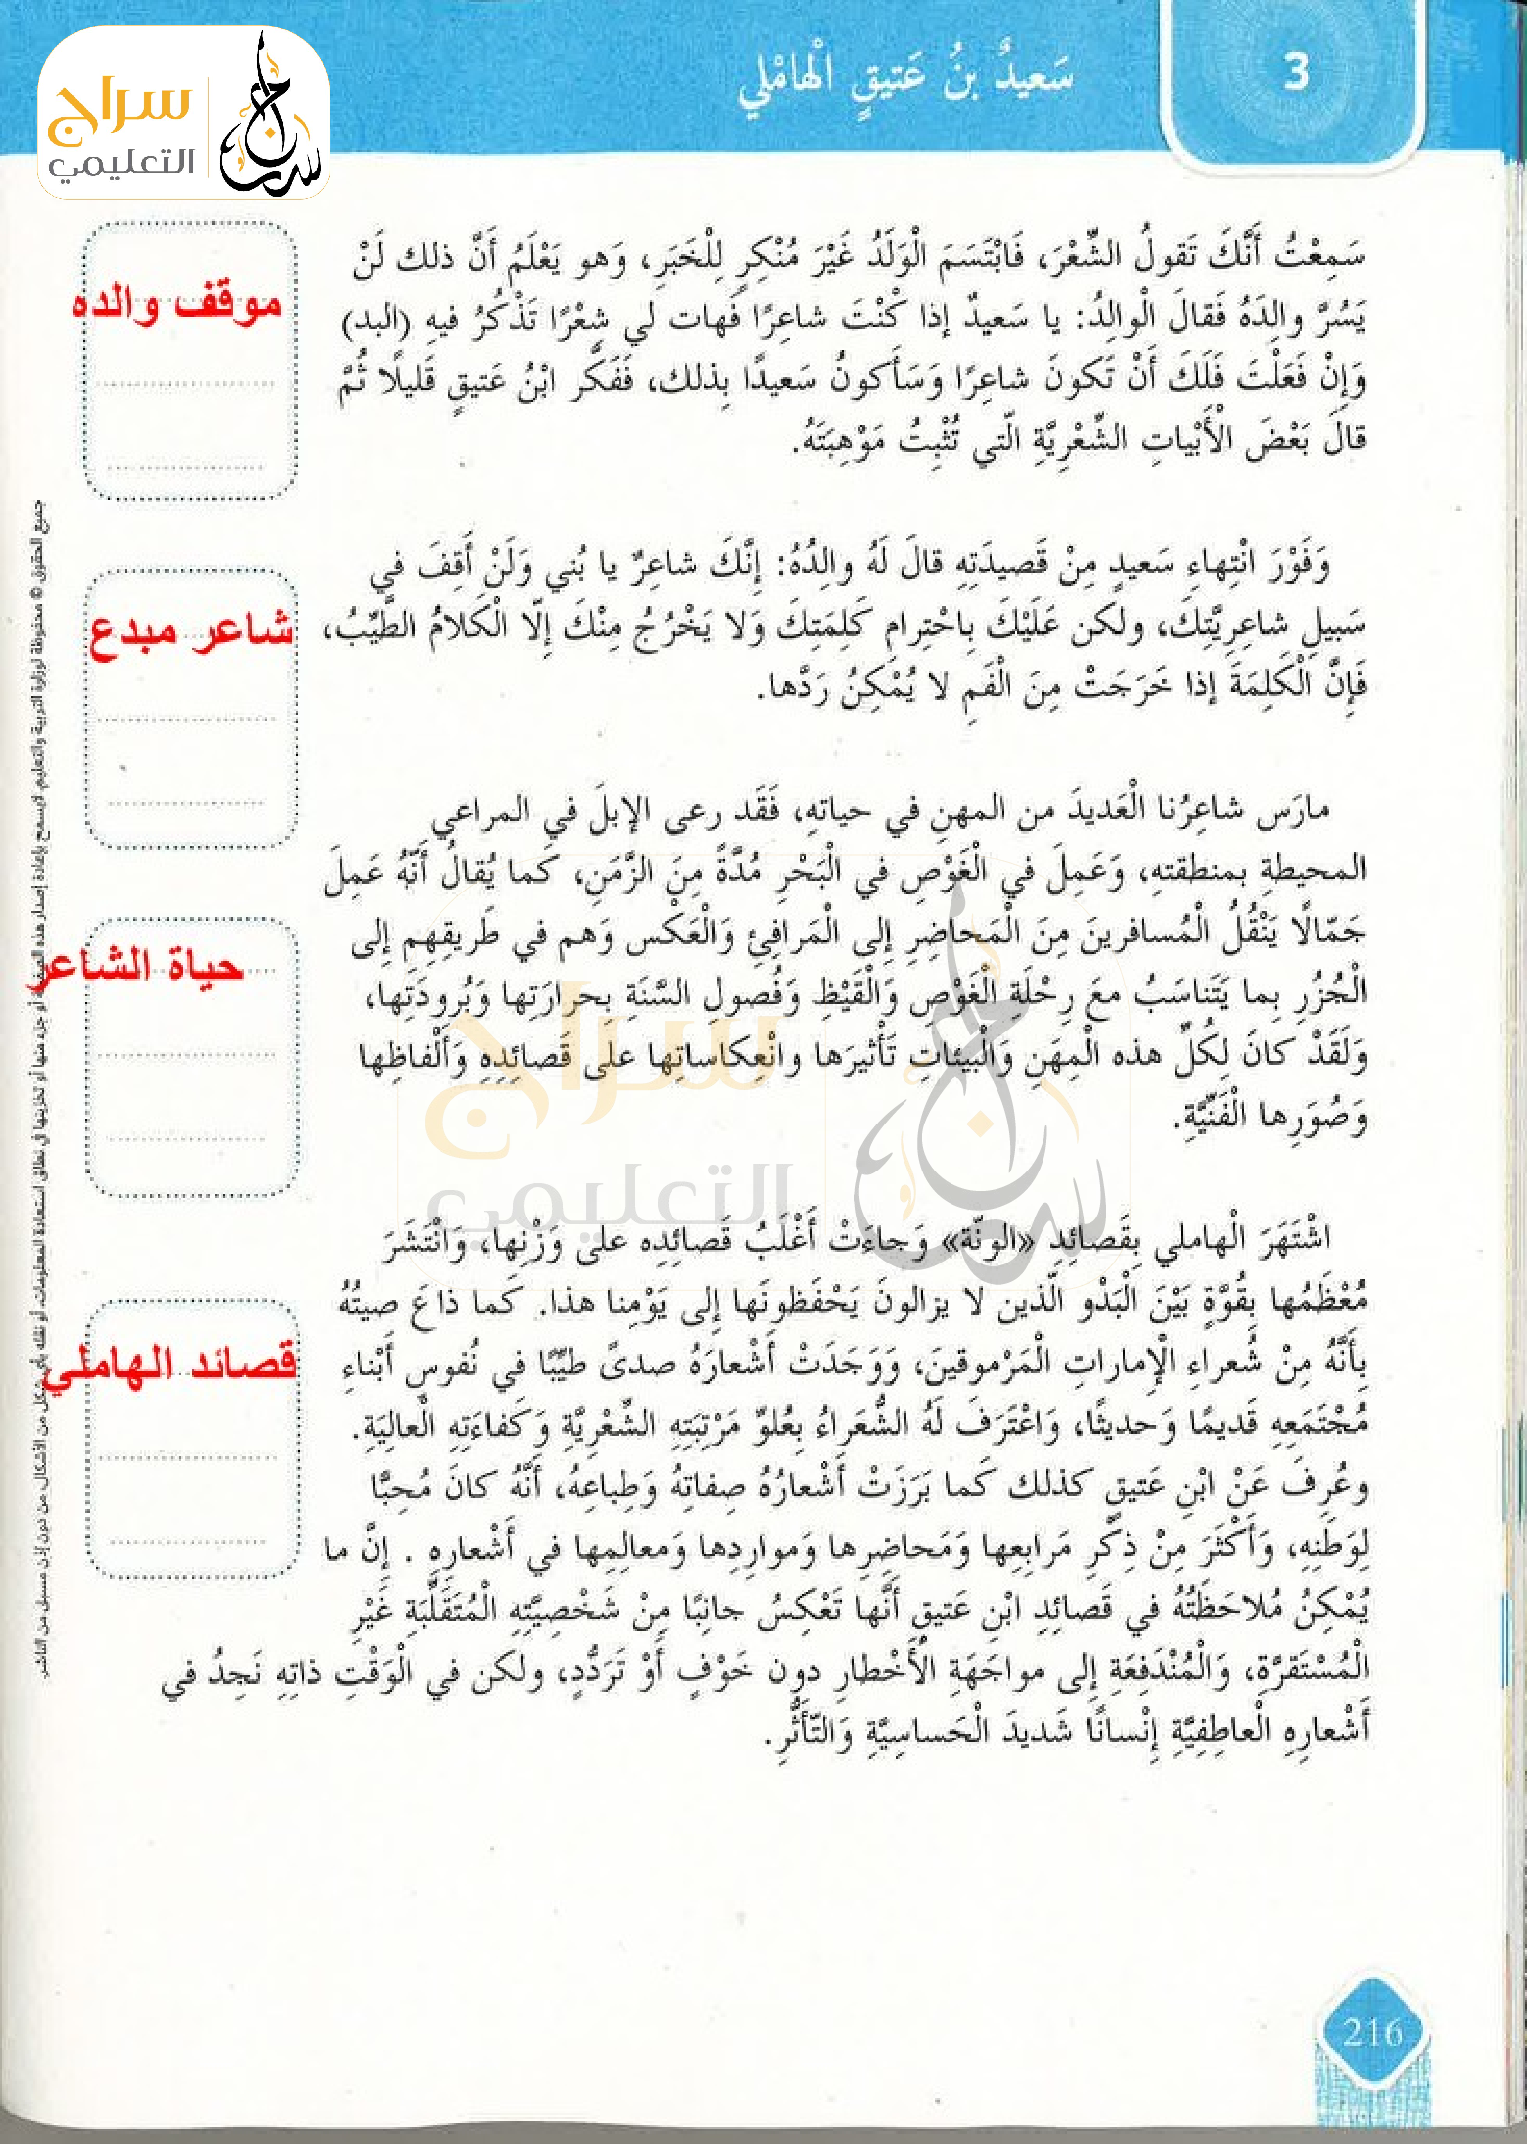 3
سَعيدٌ بنُ عَتيقٍ الْهامْلي
سراج
التعليمي
سَمِعْتُ أَنَّكَ تَقولُ الشِّعْرَ، فَابْتَسَمَ الْوَلَدُ غَيْرَ مُنْكِرٍ لِلْخَبَرِ، وَهو يَعْلَمُ أَنَّ ذلك لَنْ
يَسُرَّ والِدَهُ فَقالَ الْوالِدُ: يا سَعيدٌ إذا كُنْتَ شاعِرًا فَهات لي شِعْرًا تَذْكُرُ فيهِ (البد)
وَإِنْ فَعَلْتَ فَلَكَ أَنْ تَكونَ شاعِرًا وَسَأَكونُ سَعيدًا بِذلك، فَفَكَّر ابْنُ عَتيقٍ قَليلًا ثُمَّ
قالَ بَعْضَ الْأَبْياتِ الشِّعْرِيَّةِ الّتي تُثْبِتُ مَوْهِبَتَهُ.
موقف والده
وَفَوْرَ انْتِهاءِ سَعيدٍ مِنْ قَصيدَتِهِ قالَ لَهُ والِدُهُ: إِنَّكَ شاعِرٌ يا بُني وَلَنْ أَقِفَ في
سَبيلِ شاعِرِيَّتِكَ، ولكن عَلَيْكَ بِاحْتِرامِ كَلِمَتِكَ وَلا يَخْرُجُ مِنْكَ إِلّا الْكَلامُ الطَّيِّبُ،
فَإِنَّ الْكَلِمَةَ إذا خَرَجَتْ مِنَ الْفَمِ لا يُمْكِنُ رَدَّها.
شاعر مبدع
مارَس شاعِرُنا الْعَديدَ من المهنِ في حياتهِ، فَقَد رعى الإبلَ في المراعي
المحيطةِ بمنطقتهِ، وَعَمِلَ في الْغَوْصِ في الْبَحْرِ مُدَّةً مِنَ الزَّمَنِ، كَما يُقالُ أَنَّهُ عَمِلَ
جَمّالًا يَنْقُلُ الْمُسافرينَ مِنَ الْمَحاضِرِ إِلى الْمَرافِئِ وَالْعَكْس وَهم في طَريقِهِم إِلى
الْجُزُرِ بِما يَتَناسَبُ معَ رِحْلَةِ الْغَوْصِ وَالْقَيْظِ وَفُصولِ السَّنَةِ بِحرارَتِها وَبُرودَتِها،
وَلَقَدْ كانَ لِكُلِّ هذه الْمِهَنِ وَالْبيئاتِ تَأْثيرَها وانْعِكاساتِها على قَصائِدِهِ وَأَلْفاظِها
وَصُوَرِها الْفَنِّيَّةِ.
حياة الشاعر
سراج
التعليمي
اشْتَهَرَ الْهاملي بِقَصائِدِ «الونّة» وَجاءَتْ أَغْلَبُ قَصائِدِه على وَزْنِها، وَانْتَشَرَ
مُعْظَمُها بِقُوَّةٍ بَيْنَ الْبَدْو الَّذين لا يزالونَ يَحْفَظونَها إِلى يَوْمِنا هذا. كَما ذاعَ صيتُهُ
بِأَنَّهُ مِنْ شُعراءِ الْإماراتِ الْمَرْموقينَ، وَوَجَدَتْ أَشْعارَهُ صدىً طيِّبًا في نُفوسِ أَبْناءِ
مُجْتَمَعِهِ قَديمًا وَحديثًا، وَاعْتَرَفَ لَهُ الشُّعَراءُ بِعُلوِّ مَرْتِبَتِهِ الشِّعْرِيَّةِ وَكَفاءَتِهِ الْعالِيَةِ.
وعُرِفَ عَنْ ابْنِ عَتيقٍ كذلك كَما بَرَزَتْ أَشْعارُهُ صِفاتِهُ وَطِباعِهُ، أَنَّهُ كانَ مُحِبًّا
لِوَطَنِهِ، وَأَكْثَرَ مِنْ ذِكْرِ مَرابِعِها وَمَحاضِرِها وَموارِدِها وَمعالِمِها في أَشْعارِهِ . إِنَّ ما
يُمْكِنُ مُلاحَظَتُهُ في قَصائِدِ ابْنِ عَتيقٍ أَنَّها تَعْكِسُ جانِبًا مِنْ شَخْصِيَّتِهِ الْمُتَقَلِّبَةِ غَيْرِ
الْمُسْتَقرَّةِ، وَالْمُنْدَفِعَةِ إِلى مواجَهَةِ الْأَخْطارِ دون خَوْفٍ أَوْ تَرَدُّدٍ، ولكن في الْوَقْتِ ذاتِهِ نَجِدُ في
أَشْعارِهِ الْعاطِفِيَّةِ إِنْسانًا شَديدَ الْحَساسِيَّةِ وَالتَّأَثُّرِ.
قصائد الهاملي
جميع الحقوق © محفوظة لوزارة التربية والتعليم. لايسمح بإعادة إصدار هذه أو جزء منها أو تخزينها في نطاق استعادة المعلومات، أو نقله بأي شكل من الأشكال، من دون إذن مسبق من الناشر
216